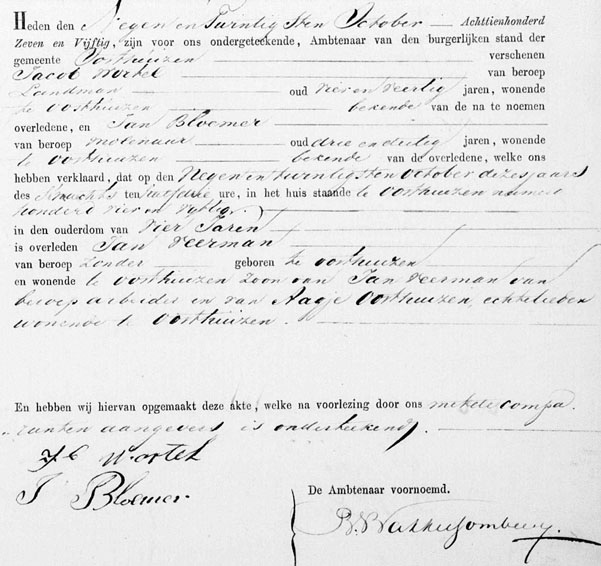 Heden den Negen en Twintigsten October Achttienhonderd
Zeven en Vijftig, zijn voor ons ondergeteekende, Ambtenaar van den burgerlijken stand der
gemeente Oosthuizen verschenen
Jacob Wortel van beroep
Landman oud vier en veertig jaren, wonende
te Oosthuizen bekende van de na te noemen
overledene, en Jan Bloemer
van beroep molenaar oud drie en dertig jaren, wonende
te Oosthuizen bekende van de overledene, welke ons
hebben verklaard, dat op den Negen en twintigsten October dezes jaars
des s'nachts ten ure, in het huis staande te Oosthuizen numer
honderd vier en vyftig.
in den ouderdom van Vier Jaren
is overleden Jan Veerman
van beroep Zonder geboren te Oosthuizen
en wonende te Oosthuizen Zoon van Jan Veerman van
beroep arbeider en van Aagje Oosthuizen, echtelieden
wonende te Oosthuizen.
En hebben wij hiervan opgemaakt deze akte, welke na voorlezing door ons met de compa-
ranten aangevers is onderteekend.
Jb Wortel
J Bloemer.
De Ambtenaar voornoemd.